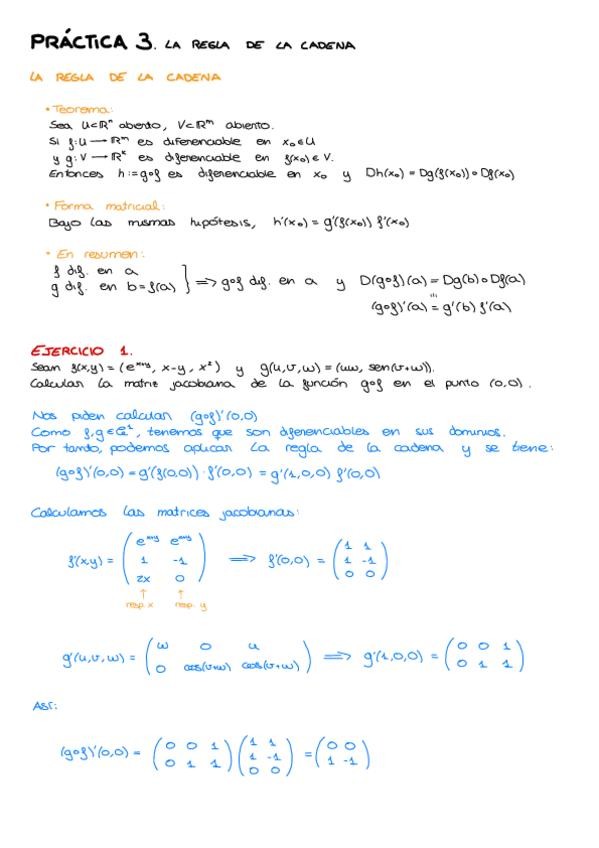 PRÁCTICA 3. LA REGLA DE LA CADENA
LA REGLA DE LA CADENA
• Teorema:
Sea U⊂ℝⁿ abierto, V⊂ℝᵐ abierto.
Si f:U → ℝᵐ es diferenciable en x₀∈U
y g:V → ℝᵏ es diferenciable en f(x₀)∈V.
Entonces h:=g∘f es diferenciable en x₀ y Dh(x₀) = Dg(f(x₀))∘Df(x₀)
• Forma matricial:
Bajo las mismas hipótesis, h'(x₀) = g'(f(x₀)) f'(x₀)
• En resumen:
f dif. en a
g dif. en b=f(a) } ⟹ g∘f dif. en a y D(g∘f)(a) = Dg(b)∘Df(a)
(g∘f)'(a) = g'(b) f'(a)
EJERCICIO 1.
Sean f(x,y) = (e^{x+y}, x-y, x²) y g(u,v,w) = (uw, sen(v+w)).
Calcular la matriz jacobiana de la función g∘f en el punto (0,0).
Nos piden calcular (g∘f)'(0,0)
Como f,g∈C¹, tenemos que son diferenciables en sus dominios.
Por tanto, podemos aplicar la regla de la cadena y se tiene:
(g∘f)'(0,0) = g'(f(0,0))·f'(0,0) = g'(1,0,0) f'(0,0)
Calculamos las matrices jacobianas:
f'(x,y) = ( e^{x+y} e^{x+y} ; 1 -1 ; 2x 0 ) ⟹ f'(0,0) = ( 1 1 ; 1 -1 ; 0 0 )
↑ ↑
resp. x resp. y
g'(u,v,w) = ( w 0 u ; 0 cos(v+w) cos(v+w) ) ⟹ g'(1,0,0) = ( 0 0 1 ; 0 1 1 )
Así:
(g∘f)'(0,0) = ( 0 0 1 ; 0 1 1 ) ( 1 1 ; 1 -1 ; 0 0 ) = ( 0 0 ; 1 -1 )